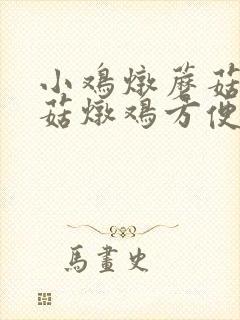 小鸡燉蘑菇
菇燉鸡方便
馬畫史